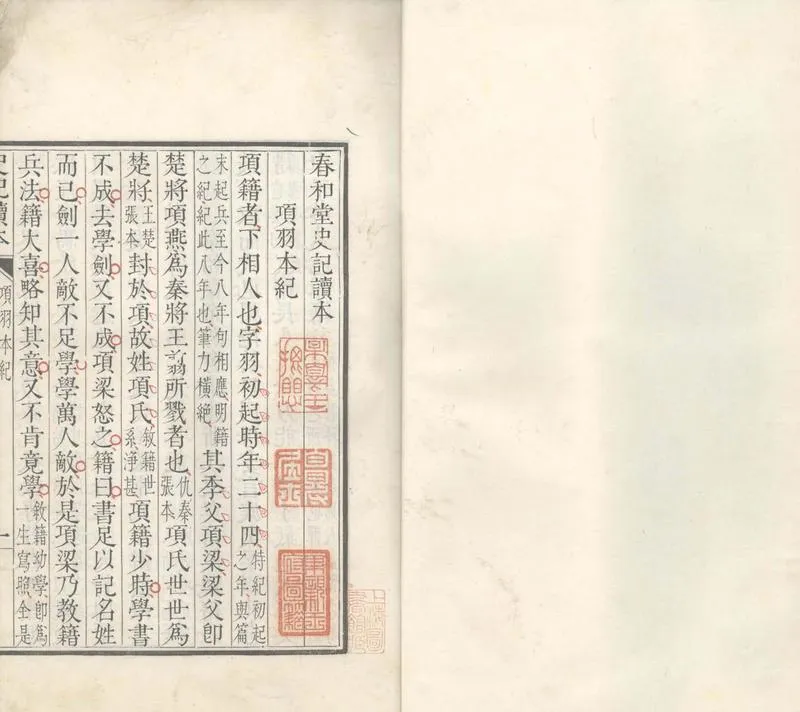 春和堂史記讀本
項羽本紀
項籍者、下相人也、字羽、初起時年二十四、特紀初起之年與篇
末起兵至今八年句相應、明籍之紀紀此八年也、筆力橫絕、其季父項梁、梁父卽
楚將項燕爲秦將王翦所戮者也、仇秦張本項氏世世爲
楚將、王楚張本封於項故姓項氏、敘籍世系淨甚項籍少時學書
不成去學劍又不成項梁怒之籍曰書足以記名姓
而已劍一人敵不足學學萬人敵於是項梁乃教籍
兵法籍大喜略知其意又不肯竟學敘籍幼學、卽爲一生寫照、全是
史記讀本
項羽本紀
一